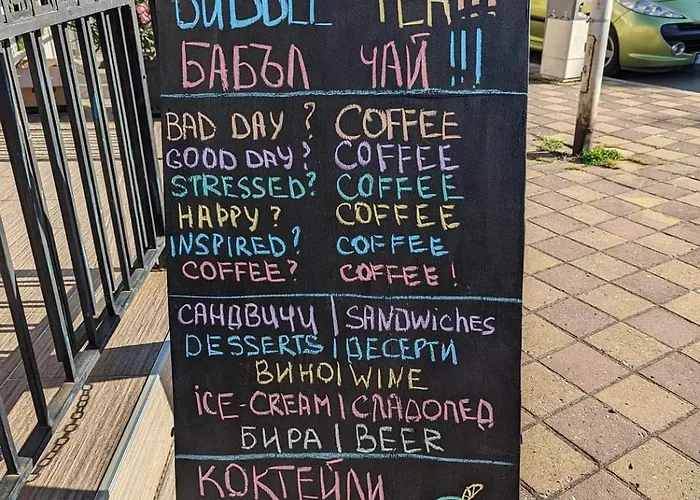 BUBBLE TEA!!!
БАБЪЛ ЧАЙ!!!
BAD DAY? COFFEE
GOOD DAY? COFFEE
STRESSED? COFFEE
HAPPY? COFFEE
INSPIRED? COFFEE
COFFEE? COFFEE!
САНДВИЧИ | SANDWiCHES
DESSERTS | ДЕСЕРТИ
ВИНО | WINE
iCE-CREAM | СЛАДОЛЕД
БИРА | BEER
КОКТЕЙЛИ